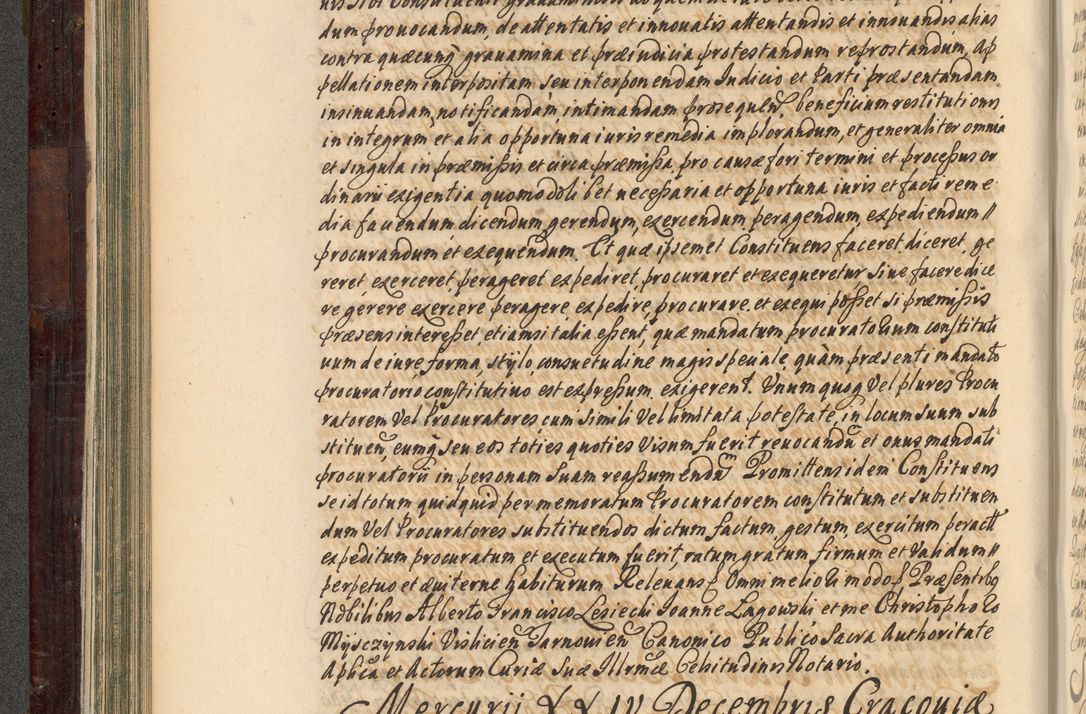 dum provocandum, de attentatis et innovatis attentandis et innovandis alias
contra quæcunq́ gravamina et præiudicia protestandum reprostandum, Ap
pellationem interpositam seu interponendam Iudicio et Parti præsentandam
insinuandam, notificandam, intimandam prosequen̄. beneficium restitutionis
in integrum et alia opportuna iuris remedia implorandum, et generaliter omnia
et singula in præmissis et circa præmissa, pro causæ fori termini et processus or
dinarii exigentia quomodolibet necessaria et opportuna iuris et facti reme
dia favendum dicendum, gerendum, exercendum, peragendum, expediendum //
procurandum et exequendum. Et quæ ipsemet Constituens faceret, diceret, ge
reret, exerceret, perageret expediret, procuraret et exequeretur sive facere dice
re gerere exercere peragere, expedire, procurare. et exequi posset si præmissis
præsens interesset etiamsi talia essent, quæ mandatum procuratorium constituti
vum de iure, forma, stÿlo consuetudine magis speciale quàm præsenti mandato
procuratorio constitutivo est expressum exigerent. Unum quoq Vel plures Procu
ratorem Vel Procuratores cum simili Vel limitata potestate, in locum suum sub
stituen̄, eumq́ seu eos toties quoties Visum fuerit revocandū et onus mandati
procuratorii in personam suam reassumendūm Promittens idem Constituens
se id totum quidquid per memoratum Procuratorem constitutum et substituen
dum Vel Procuratores substituendos dictum factum, gestum, exercitum peractū
expeditum procuratum et executum fuerit, ratum gratum firmum et Validum //
perpetuo et æviterne habiturum Relevans Omni meliori modo Præsentibs
Nobilibus Alberto Francisco Lesiecki Ioanne Lagowski et me Christophoro
Mÿsczynski Vislicien̄ Tarnovien̄ Canonico Publicó Sacra Authoritate
Aplica et Actorum Curiæ Suæ Illrmæ Celsitudinis Notario.
Mercurii XXIV Decembris Cracoviæ